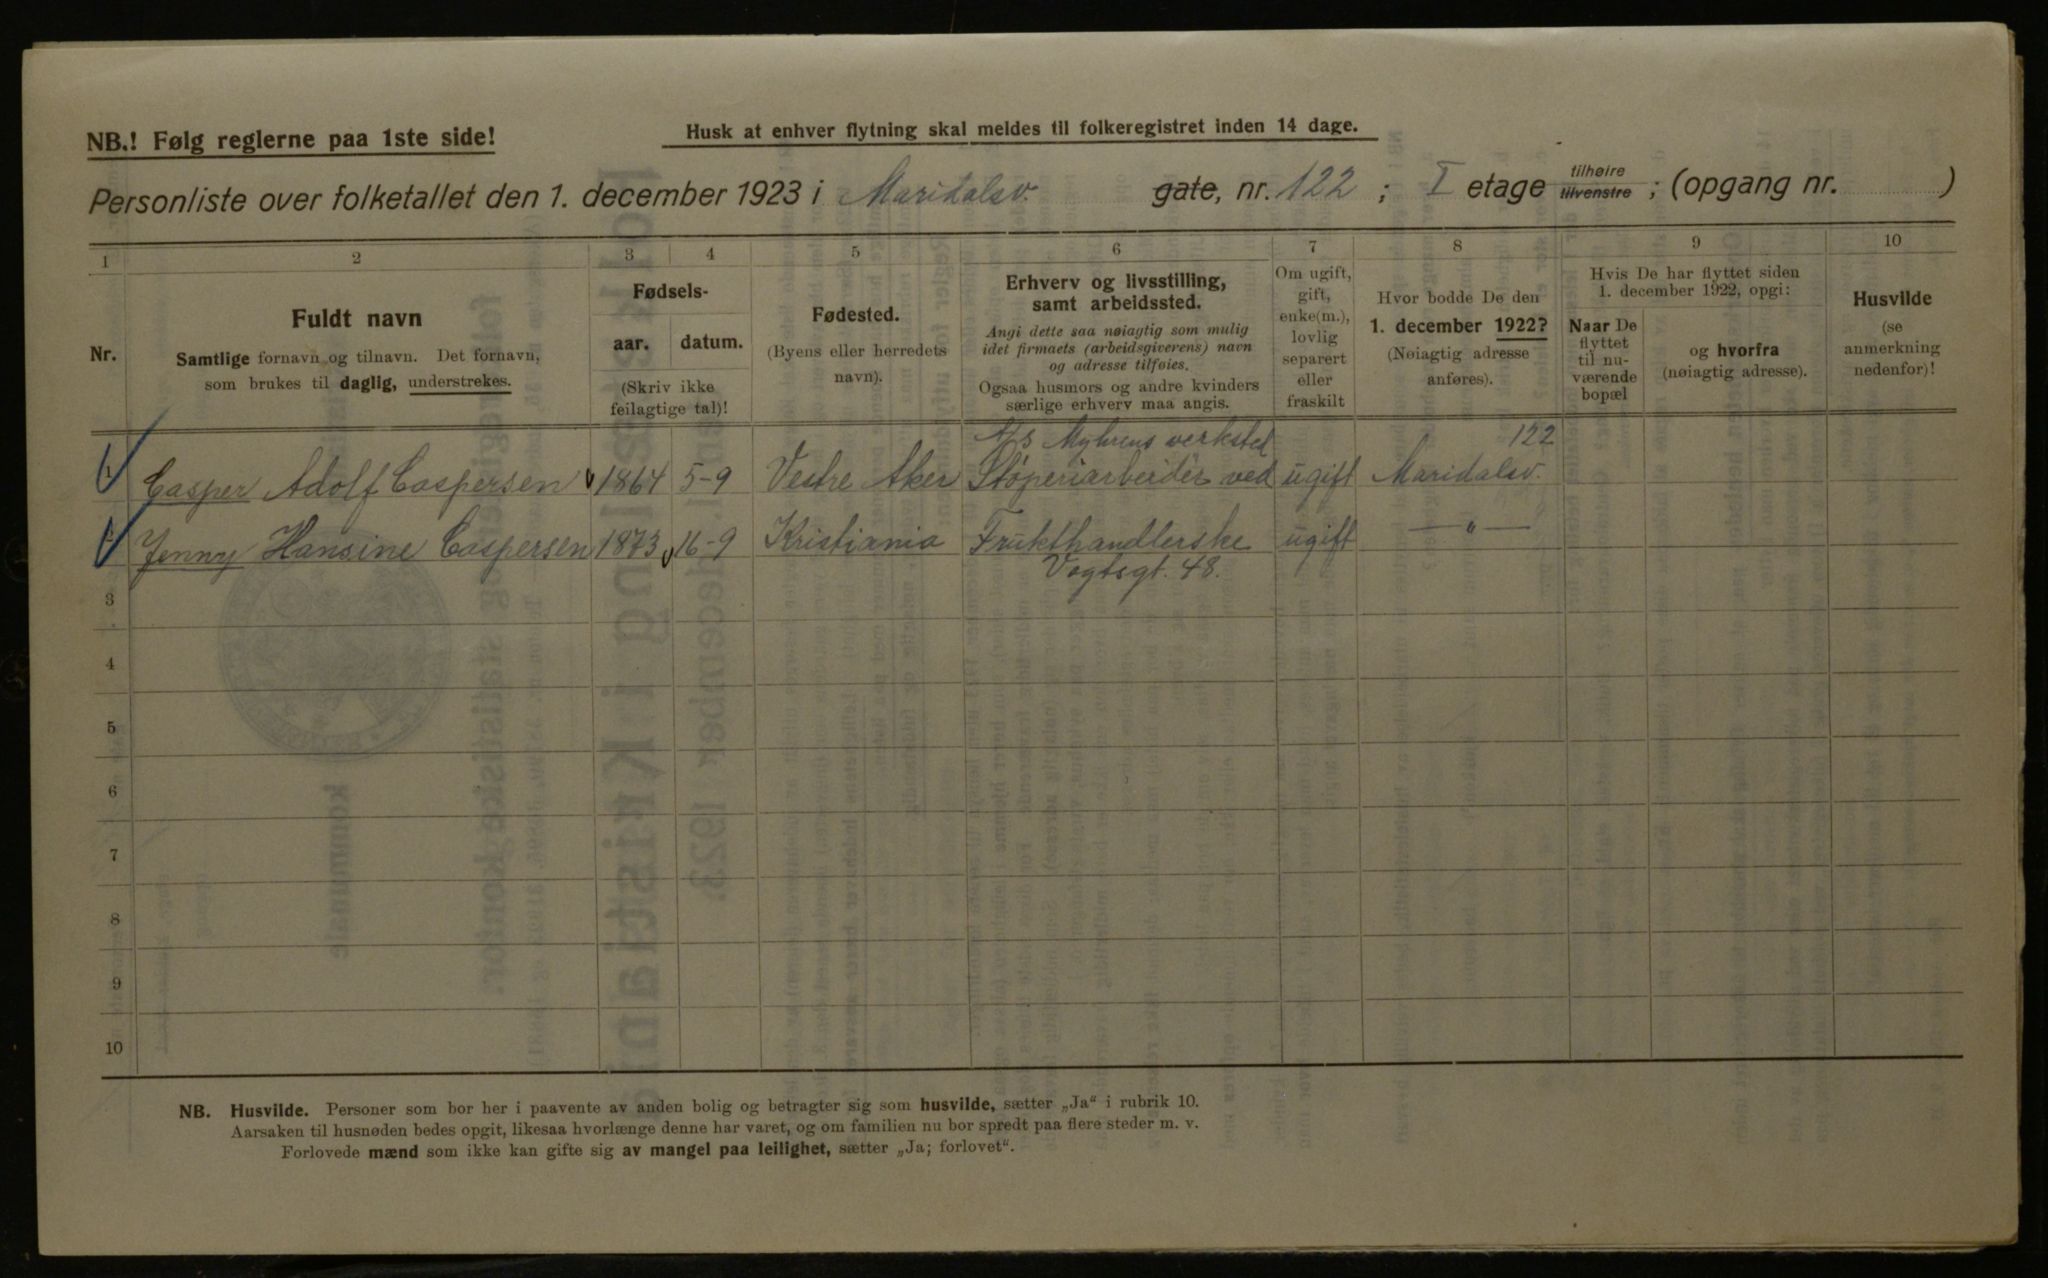 NB.! Følg reglerne paa 1ste side!
Husk at enhver flytning skal meldes til folkeregistret inden 14 dage.
Personliste over folketallet den 1. december 1923 i Maridalsv. gate, nr. 122 ; I etage tilhøire tilvenstre ; (opgang nr. )
1 2 3 4 5 6 7 8 9 10
Nr.
Fuldt navn
Samtlige fornavn og tilnavn. Det fornavn,
som brukes til daglig, understrekes.
Fødsels-
aar. datum.
(Skriv ikke
feilagtige tal)!
Fødested.
(Byens eller herredets
navn).
Erhverv og livsstilling,
samt arbeidssted.
Angi dette saa nøiagtig som mulig
idet firmaets (arbeidsgiverens) navn
og adresse tilføies.
Ogsaa husmors og andre kvinders
særlige erhverv maa angis.
Om ugift,
gift,
enke(m.),
lovlig
separert
eller
fraskilt
Hvor bodde De den
1. december 1922?
(Nøiagtig adresse
anføres).
Hvis De har flyttet siden
1. december 1922, opgi:
Naar De
flyttet
til nu-
værende
bopæl
og hvorfra
(nøiagtig adresse).
Husvilde
(se
anmerkning
nedenfor)!
A/S Myhrens verksted 122
1 Casper Adolf Caspersen 1864 5-9 Vestre Aker Støperiarbeider ved ugift Maridalsv.
2 Jenny Hansine Caspersen 1873 16-9 Kristiania Frukthandlerske ugift — " —
Vogtsgt. 48.
3
4
5
6
7
8
9
10
NB. Husvilde. Personer som bor her i paavente av anden bolig og betragter sig som husvilde, sætter „Ja“ i rubrik 10.
Aarsaken til husnøden bedes opgit, likesaa hvorlænge denne har varet, og om familien nu bor spredt paa flere steder m. v.
Forlovede mænd som ikke kan gifte sig av mangel paa leilighet, sætter „Ja; forlovet“.